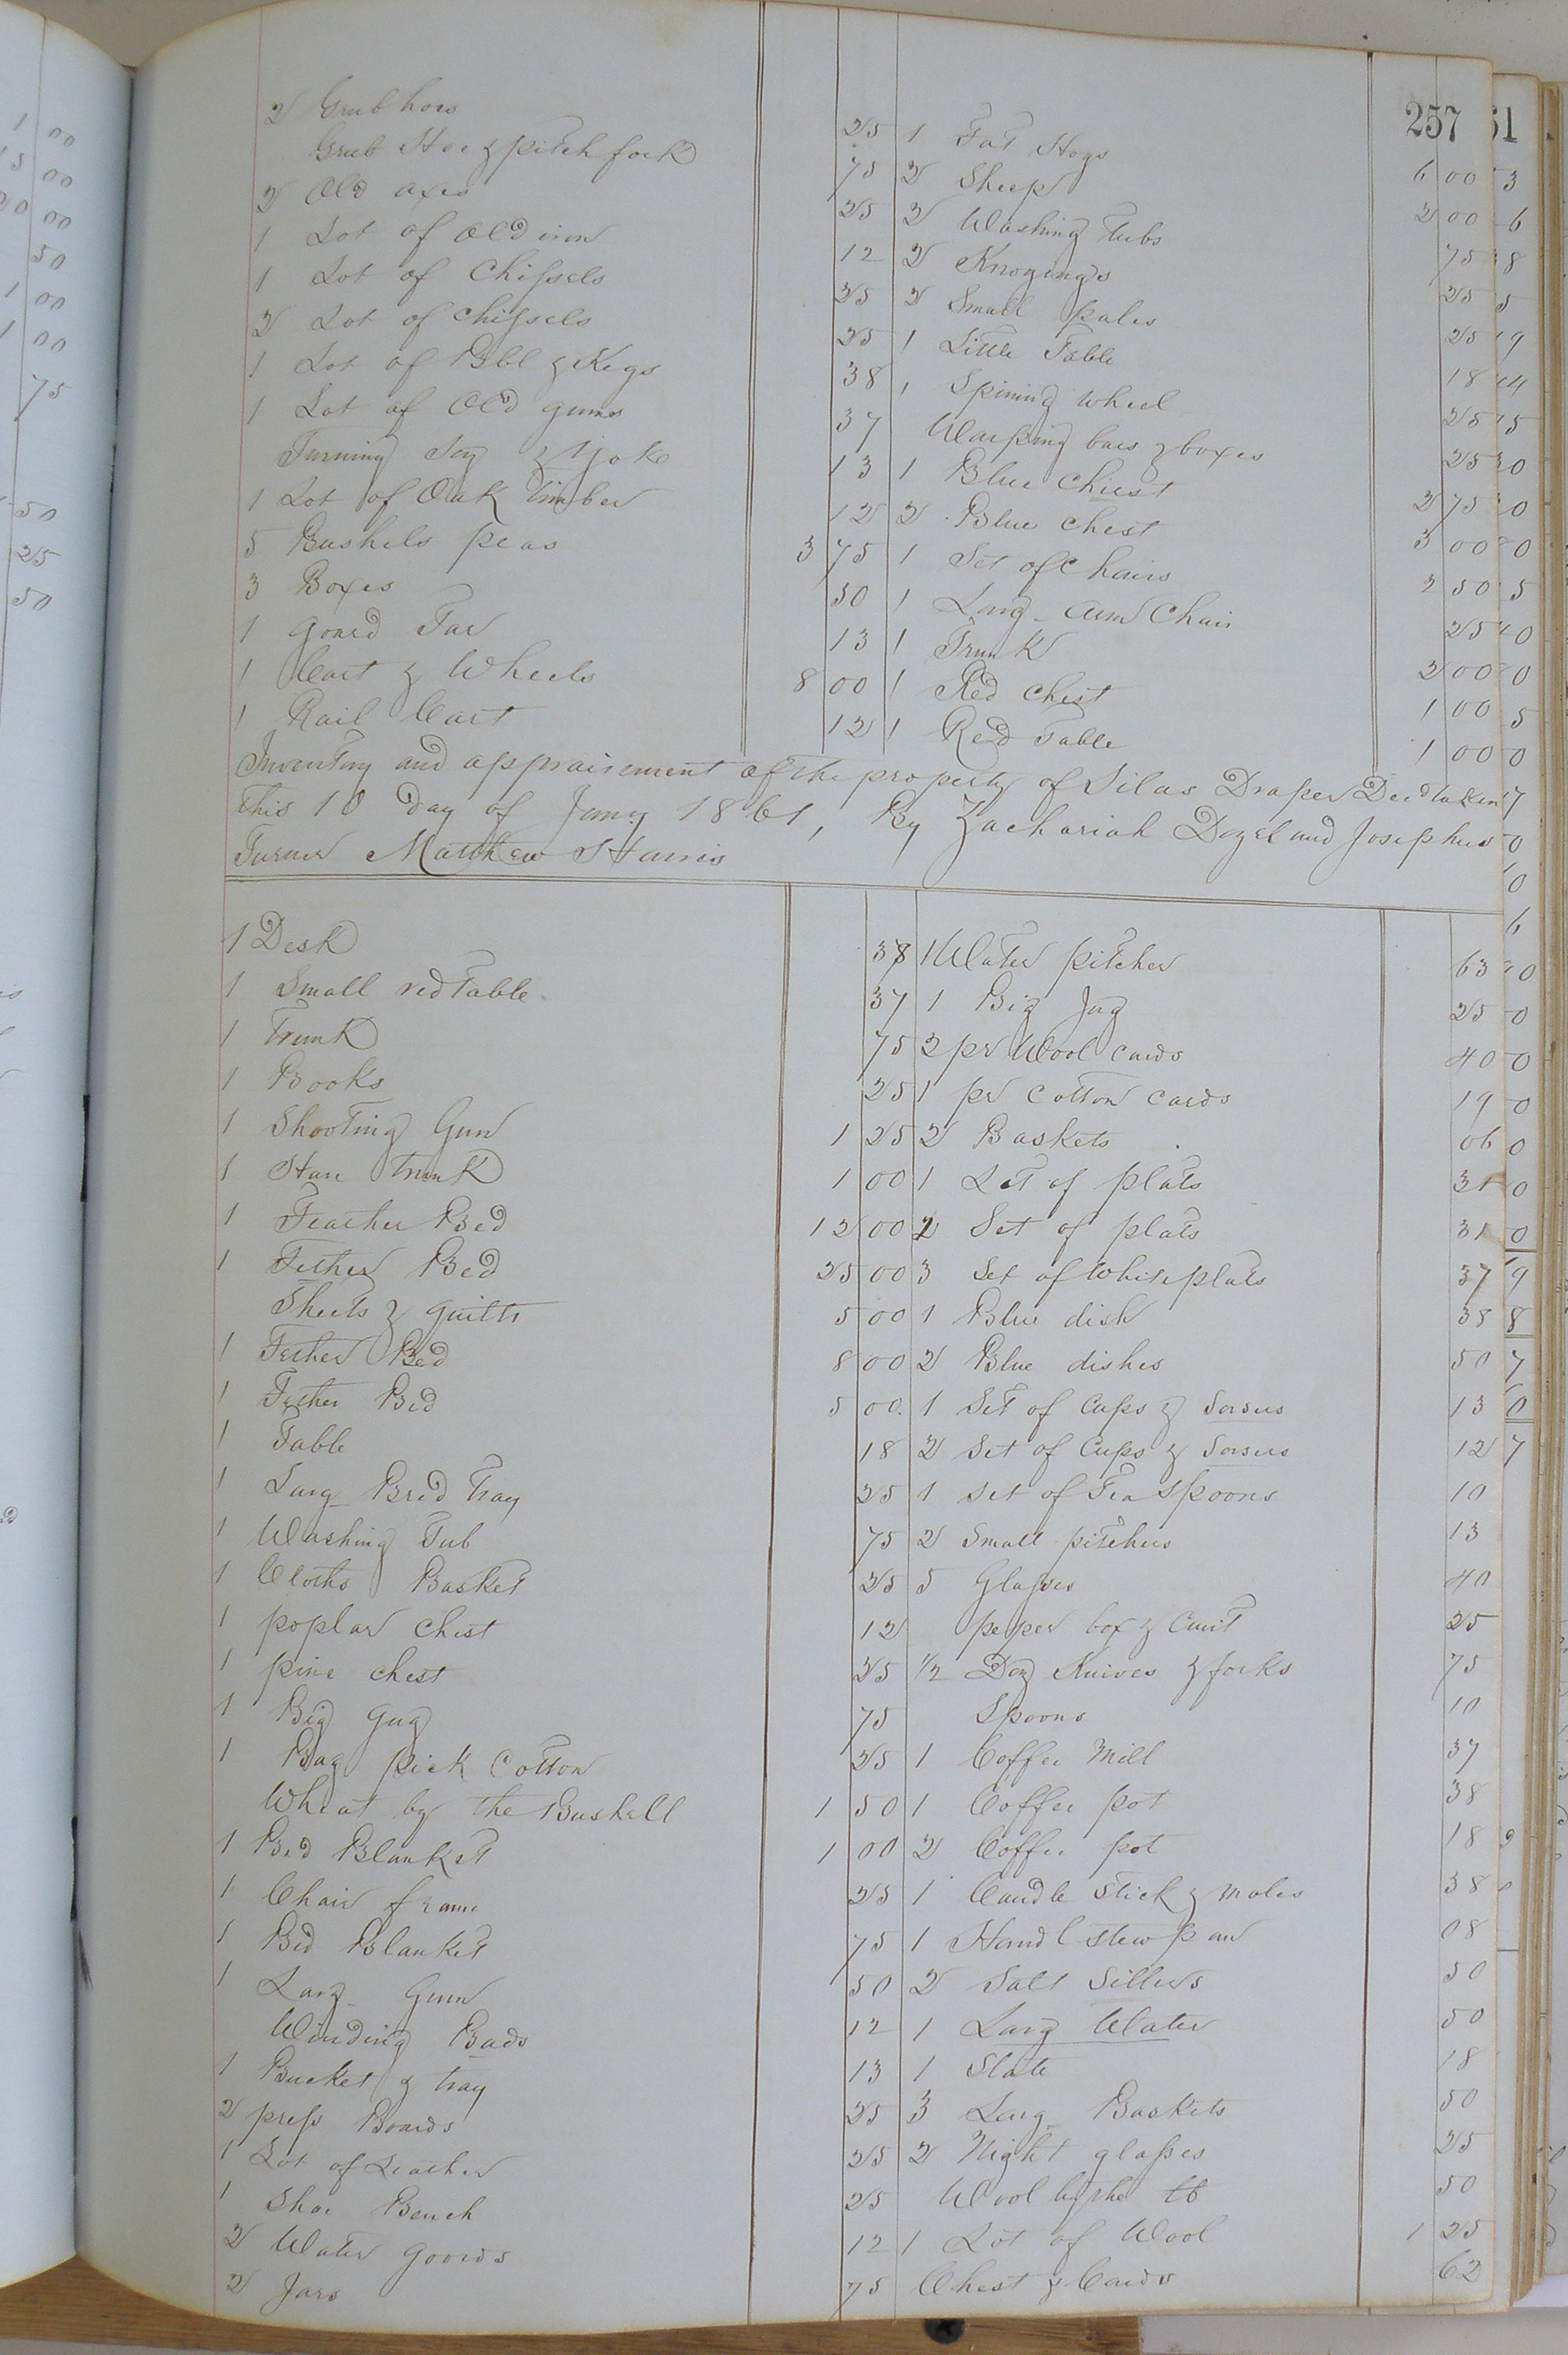 257
2 Grub hoes 25
Grub Hoe & pitch fork 75
2 Old axes 25
1 Lot of Old iron 12
1 Lot of Chissels 25
2 Lot of chissels 25
1 Lot of Bbl & Kegs 38
1 Lot of Old gums 37
Turning & yoke 13
1 Lot of Oak Timber 12
5 Bushels peas 3 75
3 Boxes 50
1 gourd Tar 13
1 Cart & Wheels 8 00
1 Rail Cart 12
1 Fat Hogs 6 00
2 Sheep 2 00
2 Washing Tubs 75
2 25
2 Small pales 25
1 Little Table 18
1 Spining wheel 25
Warping bars & boxes 25
1 Blue Chiest 2 75
2 Blue Chest 3 00
1 Set of Chairs 2 50
1 Larg arm Chair 25
1 Trunk 2 00
1 Red Chest 1 00
1 Red Table 1 00
Inventory and appraisement of the property of Silas Draper Decd taken
this 10 Day of Jany 1861, By Zachariah Dozel and Josephus
Turner Matthew Harris
1 Desk 38
1 Small red Table 37
1 Trunk 75
1 Books 25
1 Shooting Gun 1 25
1 Hair Trunk 1 00
1 Feather Bed 12 00
1 Fether Bed 25 00
Sheets & quilts 5 00
1 Fether Bed 8 00
1 Fether Bed 5 00
1 Table 18
1 Larg Bred Tray 25
1 Washing Tub 75
1 Cloths Basket 25
1 poplar chest 12
1 pine chest 25
1 Big gug 75
1 Bag pick Cotton 25
Wheat by the Bushell 1 50
1 Bed Blanket 1 00
1 Chair frame 25
1 Bed Blanket 75
1 Larg Gum 50
Winding Bads 12
1 Bucket & tray 13
2 press Boards 25
1 Lot of Leather 25
1 Shoe Bench 25
2 Water goords 12
2 Jars 75
1 Water pitcher 63
1 Big Jug 25
2 pr Wool cards 40
1 pr Cotton cards 19
2 Baskets 06
1 Set of plats 31
2 Set of plats 31
3 Set of White plats 37
1 Blue dish 38
2 Blue dishes 50
1 Set of Cups & Sorsers 13
2 Set of Cups & Sorsers 12
1 Set of Tea Spoons 10
2 Small pitchers 13
5 Glasses 40
peper box & Cruit 25
1/2 Doz Knives & forks 75
Spoons 10
1 Coffee Mill 37
1 Coffee pot 38
2 Coffee pot 18
1 Candle Stick & moles 38
1 Handl stew pan 08
2 Salt Sillers 50
1 Larg Water 50
1 Slate 18
3 Larg Baskets 50
2 Night glasses 25
Wool by the lb 50
1 Lot of Wool 1 25
Chest & Cards 62